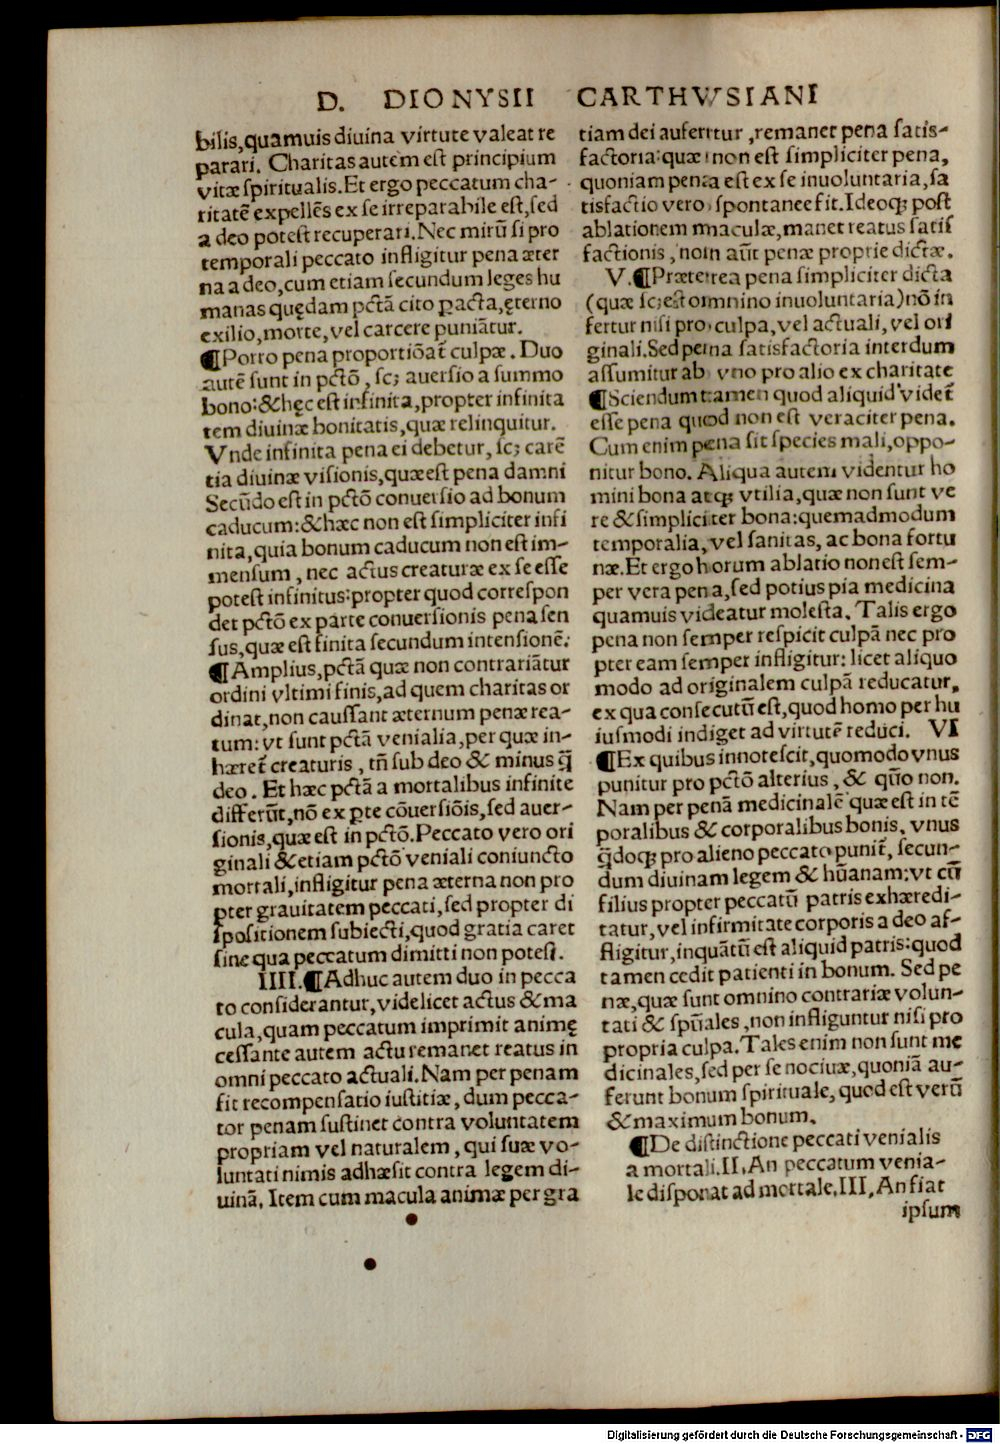 D. DIONYSII CARTHVSIANI
bilis,quamuis diuina virtute valeat re
parari. Charitas autem est principium
vitæ spiritualis.Et ergo peccatum cha-
ritatē expellēs ex se irreparabile est,sed
a deo potest recuperari.Nec mirū si pro
temporali peccato infligitur pena æter
na a deo,cum etiam secundum leges hu
manas quędam pctā cito ꝑacta,ęterno
exilio,morte,vel carcere puniātur.
¶Porro pena proportiōat̄ culpæ. Duo
autē sunt in pctō, sc; auersio a summo
bono:&hęc est infinita,propter infinita
tem diuinæ bonitatis,quæ relinquitur.
Vnde infinita pena ei debetur, sc; carē
tia diuinæ visionis,quæ est pena damni
Secūdo est in pctō conuersio ad bonum
caducum:&hæc non est simpliciter infi
nita,quia bonum caducum non est im-
mensum, nec actus creaturæ ex se esse
potest infinitus:propter quod correspon
det pctō ex parte conuersionis pena sen
sus,quæ est finita secundum intensionē:
¶Amplius,pctā quæ non contrariātur
ordini vltimi finis,ad quem charitas or
dinat,non caussant æternum penæ rea-
tum:vt sunt pctā venialia,per quæ in-
hæret̄ creaturis, tn̄ sub deo & minus q̄
deo. Et hæc pctā a mortalibus infinite
differūt,nō ex ꝑte cōuersiōis,sed auer-
sionis,quæ est in pctō.Peccato vero ori
ginali &etiam pctō veniali coniuncto
mortali,infligitur pena æterna non pro
pter grauitatem peccati,sed propter di
spositionem subiecti,quod gratia caret
sine qua peccatum dimitti non potest.
IIII.¶Adhuc autem duo in pecca
to considerantur,videlicet actus &ma
cula,quam peccatum imprimit animę
cessante autem actu remanet reatus in
omni peccato actuali.Nam per penam
fit recompensatio iustitiæ, dum pecca-
tor penam sustinet contra voluntatem
propriam vel naturalem, qui suæ vo-
luntati nimis adhæsit contra legem di-
uinā. Item cum macula animæ per gra
tiam dei aufertur,remanet pena satis-
factoria:quæ non est simpliciter pena,
quoniam pena est ex se inuoluntaria,sa
tisfactio vero spontanee fit.Ideoqꝫ post
ablationem maculæ,manet reatus satis
factionis, non aūt penæ proprie dictæ.
V.¶Præterea pena simpliciter dicta
(quæ sc; est omnino inuoluntaria)nō in
fertur nisi pro culpa,vel actuali, vel ori
ginali.Sed pena satisfactoria interdum
assumitur ab vno pro alio ex charitate
¶Sciendum tamen quod aliquid videt̄
esse pena quod non est veraciter pena.
Cum enim pena sit species mali,oppo-
nitur bono. Aliqua autem videntur ho
mini bona atqꝫ vtilia,quæ non sunt ve
re &simpliciter bona:quemadmodum
temporalia, vel sanitas, ac bona fortu
næ.Et ergo horum ablatio non est sem-
per vera pena,sed potius pia medicina
quamuis videatur molesta. Talis ergo
pena non semper respicit culpā nec pro
pter eam semper infligitur: licet aliquo
modo ad originalem culpā reducatur,
ex qua consecutū est,quod homo per hu
iusmodi indiget ad virtutē reduci. VI
¶Ex quibus innotescit,quomodo vnus
punitur pro pctō alterius, & quo̅ non.
Nam per penā medicinalē quæ est in tē
poralibus & corporalibus bonis, vnus
q̄doqꝫ pro alieno peccato punit̄, secun-
dum diuinam legem & hūanam:vt cū
filius propter peccatū patris exhæredi-
tatur,vel infirmitate corporis a deo af-
fligitur,inquātū est aliquid patris:quod
tamen cedit patienti in bonum. Sed pe
næ,quæ sunt omnino contrariæ volun-
tati & spūales,non infliguntur nisi pro
propria culpa.Tales enim non sunt me
dicinales,sed per se nociuæ,quoniā au-
ferunt bonum spirituale, quod est verū
&maximum bonum.
¶De distinctione peccati venialis
a mortali.II.An peccatum venia-
le disponat ad mortale.III.An fiat
ipsum
Digitalisierung gefördert durch die Deutsche Forschungsgemeinschaft - DFG